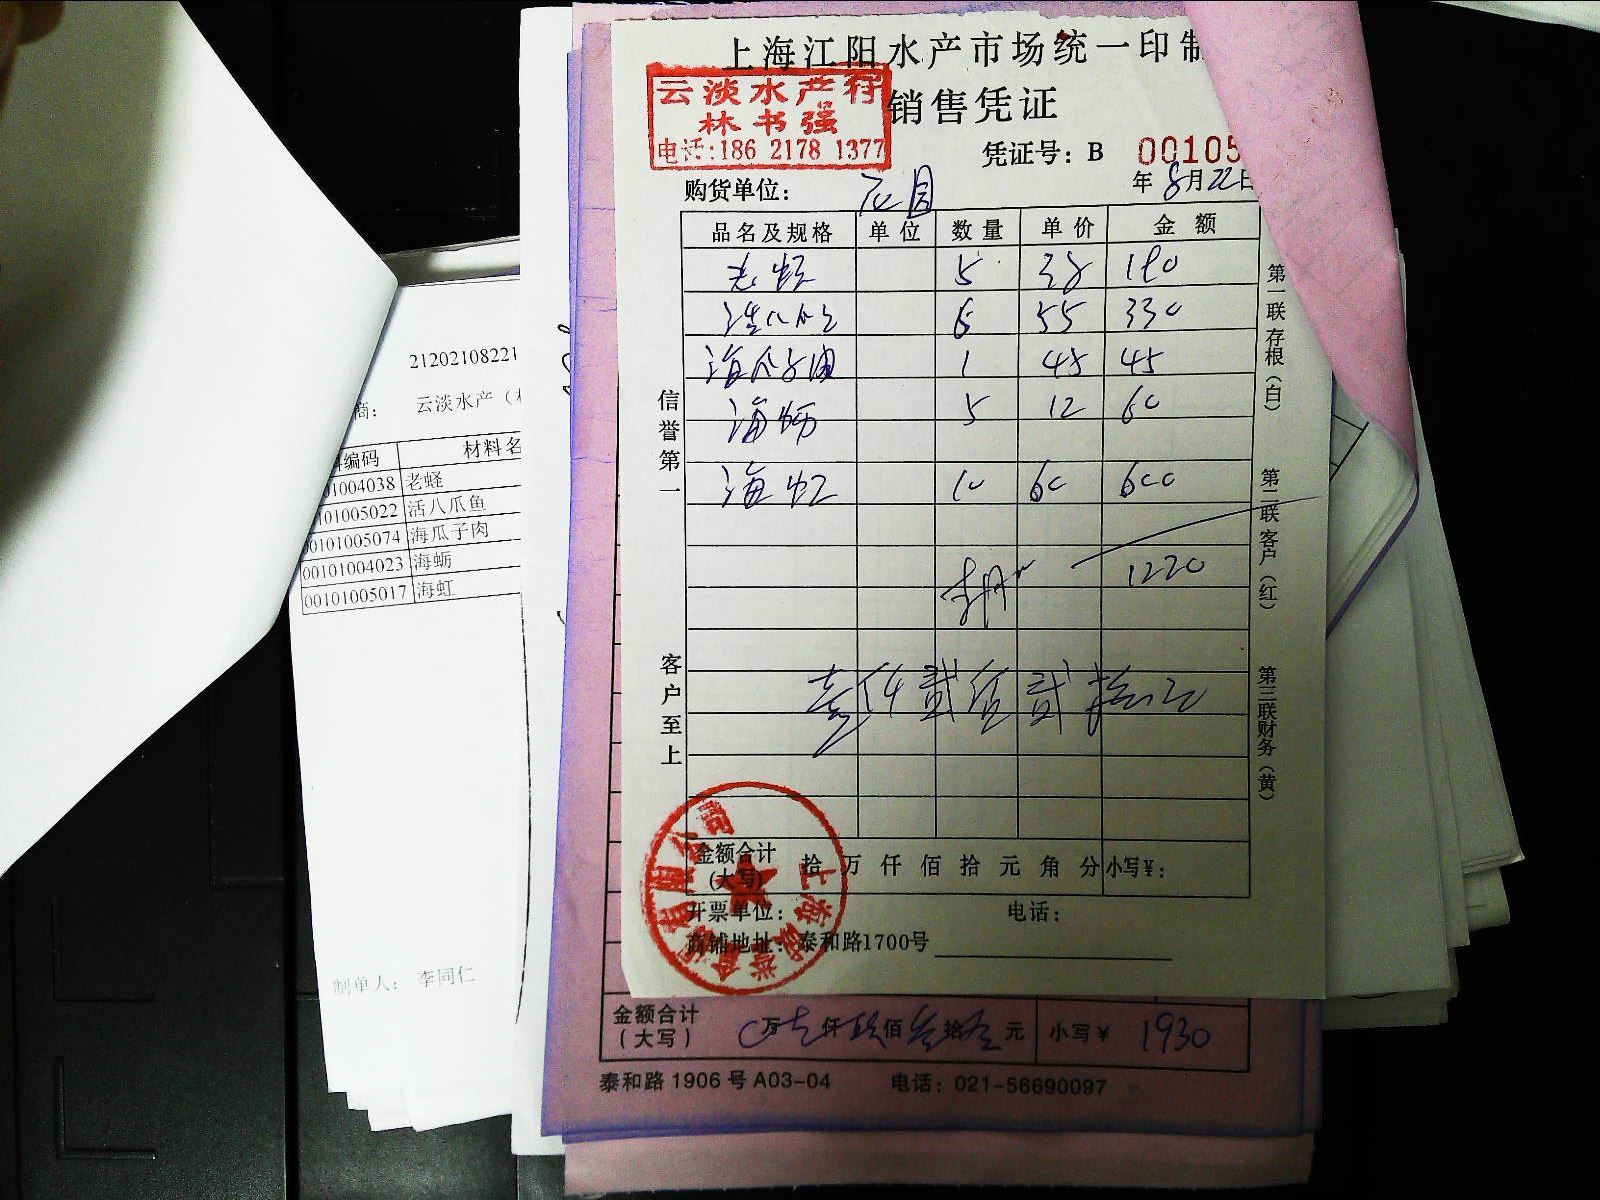 上海江阳水产市场统一印制
云淡水产行
林书强
电话:186 2178 1377
销售凭证
凭证号：B 00105
购货单位：
年 8月22日
品名及规格 单位 数量 单价 金额
老蛏 5 38 190
活八爪 6 55 330
海瓜子肉 1 45 45
海蛎 5 12 60
海虹 10 60 600
1220
壹仟贰佰贰拾元
信誉第一
客户至上
第一联存根（白）
第二联客户（红）
第三联财务（黄）
金额合计
（大写） 拾 万 仟 佰 拾 元 角 分 小写¥：
开票单位： 电话：
商铺地址：泰和路1700号
金额合计
（大写） 万 仟 佰 拾 元 小写¥ 1930
泰和路1906号A03-04 电话：021-56690097
21202108221
商： 云淡水产（
编码 材料名
01004038 老蛏
101005022 活八爪鱼
00101005074 海瓜子肉
00101004023 海蛎
00101005017 海虹
制单人： 李同仁